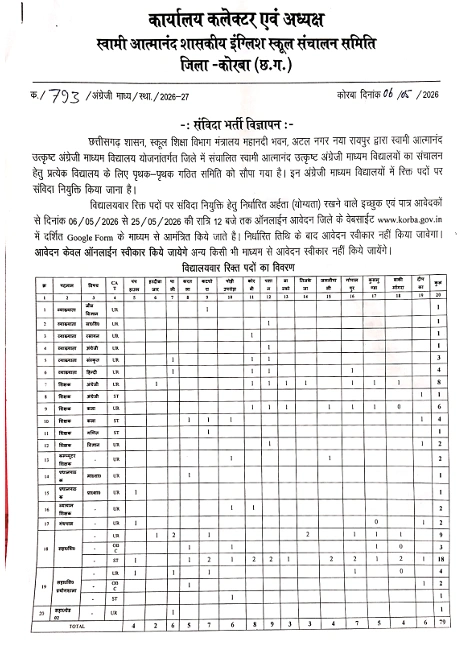 कार्यालय कलेक्टर एवं अध्यक्ष
स्वामी आत्मानंद शासकीय इंग्लिश स्कूल संचालन समिति
जिला -कोरबा (छ.ग.)
क./793/अंग्रेजी माध्य/स्था./2026-27 कोरबा दिनांक 06/05/2026
-: संविदा भर्ती विज्ञापन :-
छत्तीसगढ़ शासन, स्कूल शिक्षा विभाग मंत्रालय महानदी भवन, अटल नगर नया रायपुर द्वारा स्वामी आत्मानंद
उत्कृष्ट अंग्रेजी माध्यम विद्यालय योजनांतर्गत जिले में संचालित स्वामी आत्मानंद उत्कृष्ट अंग्रेजी माध्यम विद्यालयों का संचालन
हेतु प्रत्येक विद्यालय के लिए पृथक-पृथक गठित समिति को सौपा गया है। इन अंग्रेजी माध्यम विद्यालयों में रिक्त पदों पर
संविदा नियुक्ति किया जाना है।
विद्यालयवार रिक्त पदों पर संविदा नियुक्ति हेतु निर्धारित अर्हता (योग्यता) रखने वाले इच्छुक एवं पात्र आवेदकों
से दिनांक 06/05/2026 से 25/05/2026 की रात्रि 12 बजे तक ऑनलाईन आवेदन जिले के वेबसाईट www.korba.gov.in
में दर्शित Google Form के माध्यम से आमंत्रित किये जाते है। निर्धारित तिथि के बाद आवेदन स्वीकार नहीं किया जावेगा।
आवेदन केवल ऑनलाईन स्वीकार किये जायेंगे अन्य किसी भी माध्यम से आवेदन स्वीकार नहीं किये जायेंगे।
विद्यालयवार रिक्त पदों का विवरण
1 2 3 4 5 6 7 8 9 10 11 12 13 14 15 16 17 18 19 20
1 व्याख्याता UR 1 1
2 व्याख्याता UR 1 1
3 व्याख्याता रसायन UR 1 1
4 व्याख्याता अंग्रेजी UR 1 1
5 व्याख्याता संस्कृत UR 1 1 1 3
6 व्याख्याता हिन्दी UR 1 1 1 1 4
7 शिक्षक अंग्रेजी UR 1 1 1 1 1 1 1 1 8
8 शिक्षक अंग्रेजी ST 1 1
9 शिक्षक कला UR 1 1 1 1 1 1 0 6
10 शिक्षक कला ST 1 1 1 1 4
11 शिक्षक गणित ST 1 1
12 शिक्षक विज्ञान UR 1 1 2
13 कम्प्यूटर शिक्षक - UR 1 1 2
14 UR 1 1
15 UR 1 1
16 व्यायाम शिक्षक - UR 1 1 2
17 ग्रंथपाल - UR 1 0 1 2
18 - UR 1 2 1 2 1 1 1 9
- OBC 1 1 1 0 3
- ST 1 1 2 1 2 2 1 2 2 1 2 1 18
19 - UR 1 1 1 1 0 4
- OBC 1 1 2
- ST 1 1
20 - UR 1 1
TOTAL 4 2 6 5 7 6 8 9 3 3 4 7 5 4 6 79